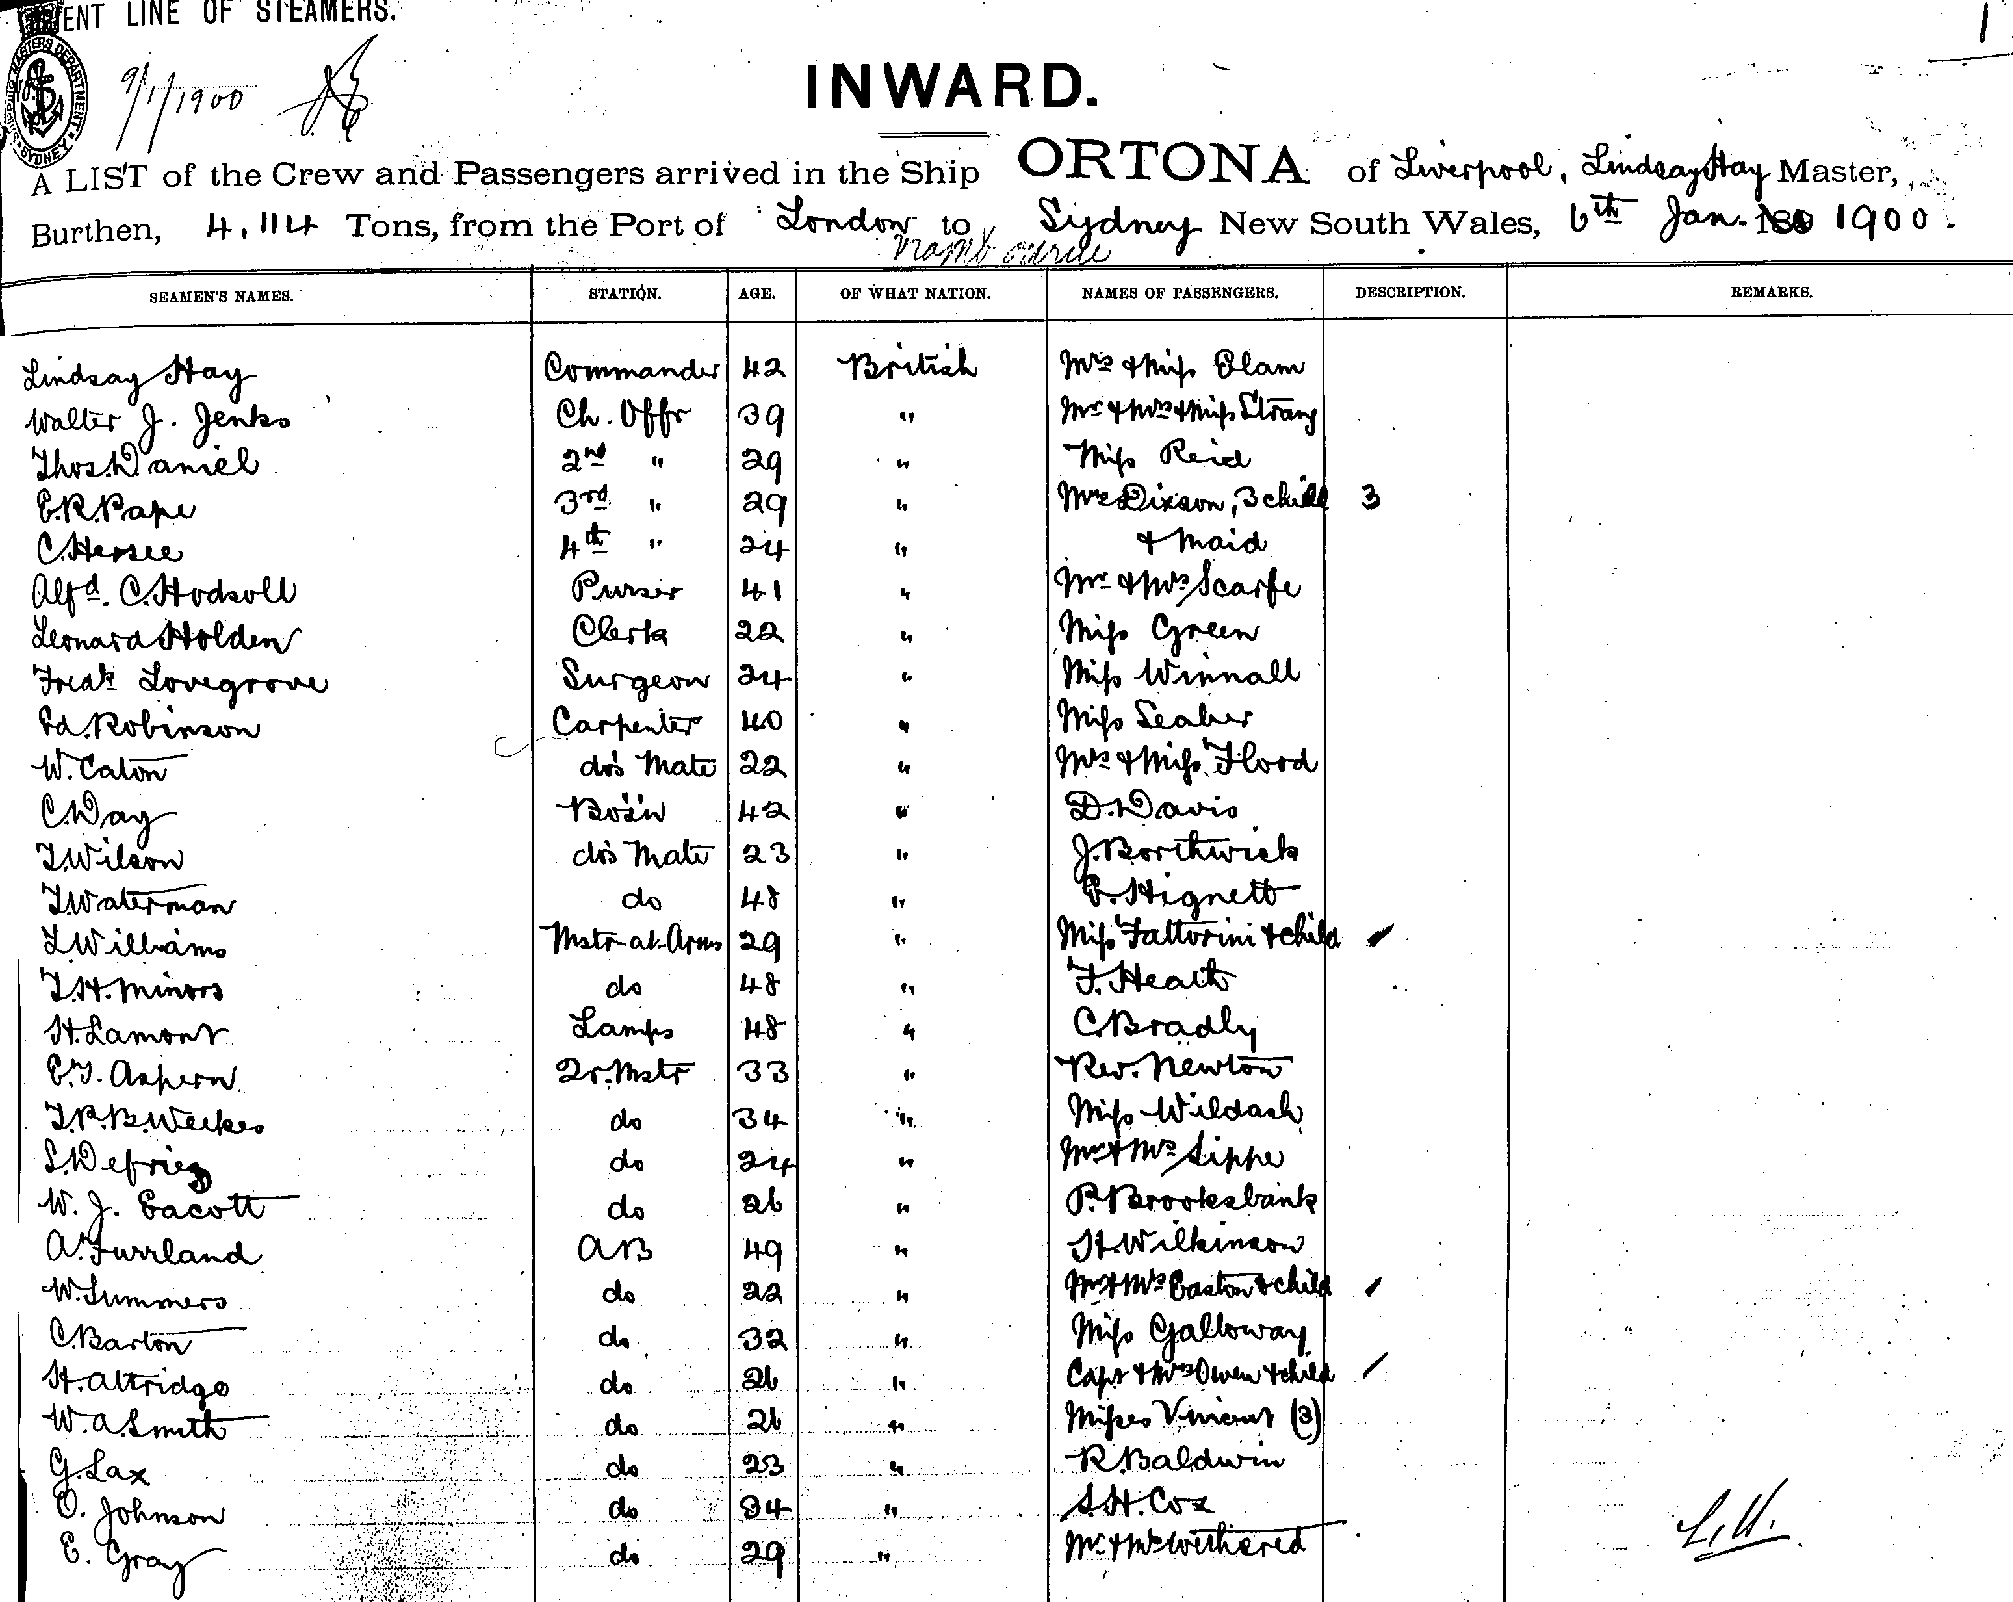 ENT LINE OF STEAMERS.
1
MASTERS DEPARTMENT
SYDNEY
9/1/1900
INWARD.
A LIST of the Crew and Passengers arrived in the Ship ORTONA of Liverpool, Lindsay Hay Master,
Burthen, 4,114 Tons, from the Port of London to Sydney New South Wales, 6th Jan. 1900.
SEAMEN'S NAMES. STATION. AGE. OF WHAT NATION. NAMES OF PASSENGERS. DESCRIPTION. REMARKS.
Lindsay Hay Commander 42 British Mrs & Miss Elam
Walter J. Jenks Ch. Offr 39 " Mr & Mrs & Miss Strang
Thos. Daniel 2nd " 29 " Miss Reid
E.R. Pape 3rd " 29 " Mrs Dixson, 3 child 3
C. Hersee 4th " 24 " & Maid
Alfd. C. Hodsoll Purser 41 " Mr & Mrs Scarfe
Leonard Holden Clerk 22 " Miss Green
Fredk Lovegrove Surgeon 24 " Miss Winnall
Ed. Robinson Carpenter 40 " Miss Seaber
W. Caton do's Mate 22 " Mrs & Miss Flood
C. Day Bos'n 42 " D. Davis
T. Wilson do's Mate 23 " J. Borthwick
T. Waterman do 48 " E. Hignett
T. Williams Mstr-at-Arms 29 " Miss Fattorini & child
T.H. Minors do 48 " F. Heath
H. Lamont Lamps 48 " C. Bradly
E.T. Aspern Qr. Mstr 33 " Rev. Newton
T.P.B. Weekes do 34 " Miss Wildash
S. Defriez do 24 " Mr & Mrs Sippe
W. J. Eacott do 26 " P. Brooksbank
A. Furrland AB 49 " H. Wilkinson
W. Summers do 22 " Mr & Mrs Easton & child
C. Barton do 32 " Miss Galloway
H. Attridge do 26 " Capt & Mrs Owen & child
W.A. Smith do 26 " Misses Vincent (3)
G. Lax do 23 " R. Baldwin
O. Johnson do 34 " S.H. Cox
E. Gray do 29 " Mr & Mrs Withered
L.H.